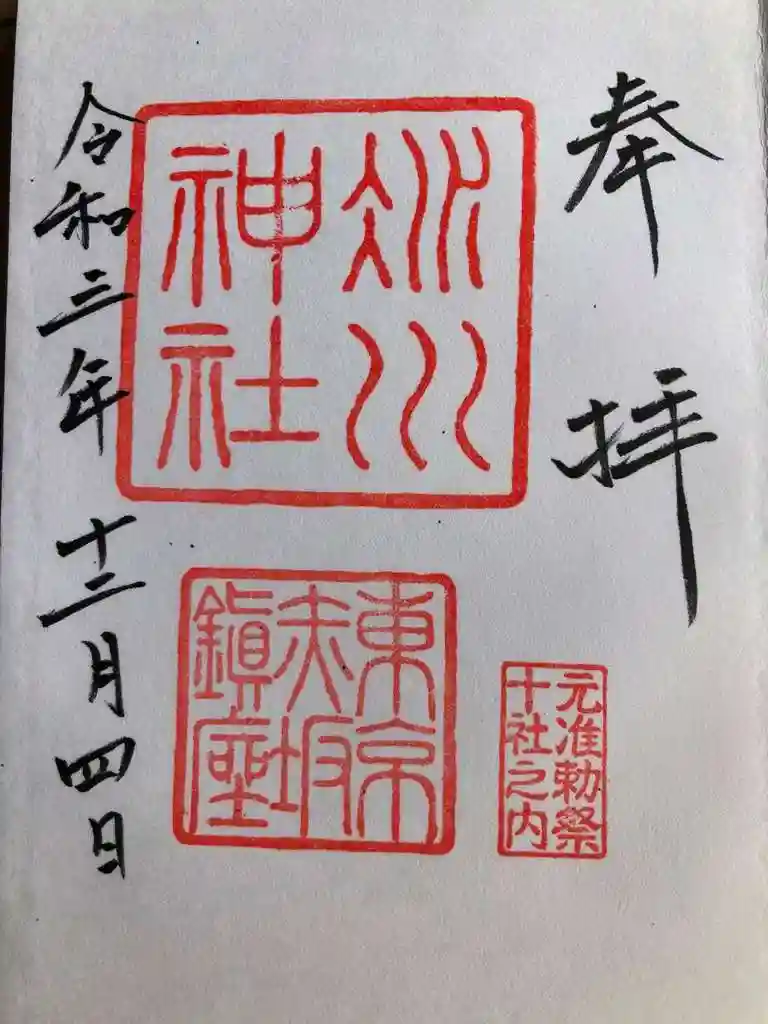 奉拝
氷川
神社
東京
赤坂
鎮座
元准勅祭
十社之内
令和三年十二月四日